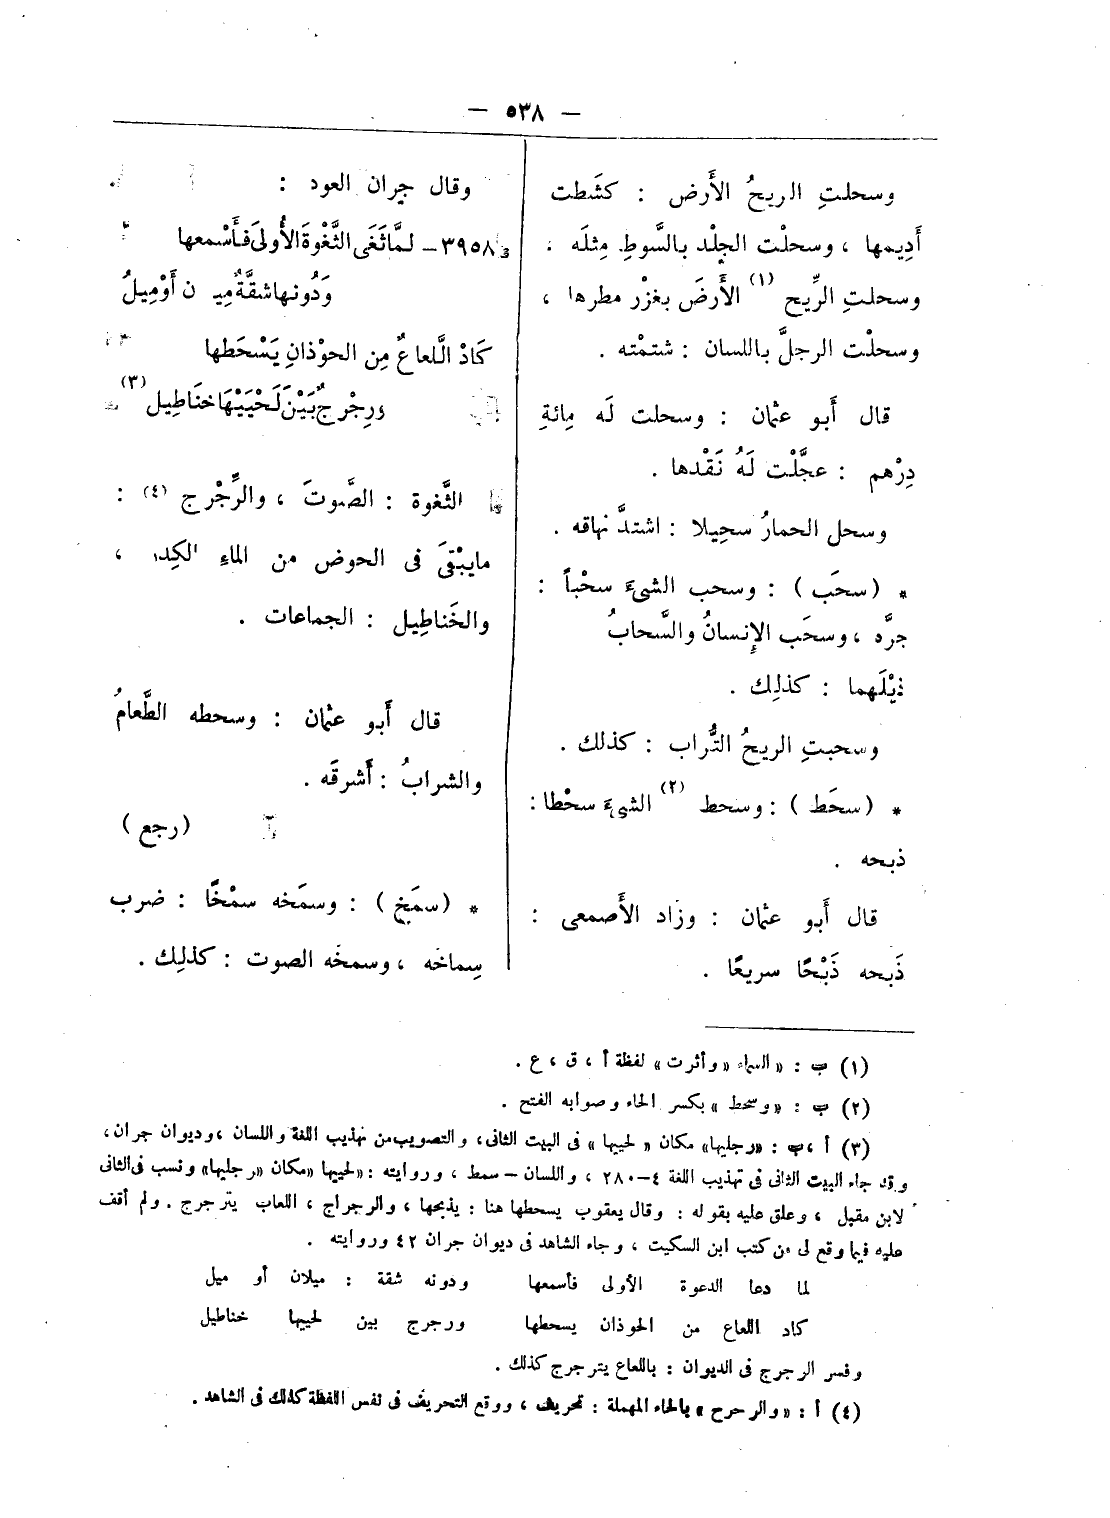 — ٥٣٨ —
وسحلتِ الريحُ الأَرض : كشَطت
أَدِيمها ، وسحلْت الجِلْد بالسَّوطِ مِثلَه .
وسحلتِ الرِّيح (١) الأَرضَ بغزْر مطرها ،
وسحلْت الرجلَّ باللسان : شتمْته .
قال أَبو عثمان : وسحلت لَه مِائةِ
دِرْهم : عجَّلْت لَهُ نَقْدها .
وسحل الحمارُ سحِيلا : اشتدَّ نهاقه .
* ( سحَب ) : وسحب الشىءَ سحْباً :
جرَّه ، وسحَب الإِنسانُ والسَّحابُ
ذيْلَهما : كذلِك .
وسحبتِ الريحُ التُّراب : كذلك .
* ( سحَط ) : وسحط (٢) الشىءَ سحْطا :
ذبحه .
قال أَبو عثمان : وزاد الأَصمعى :
ذَبحه ذَبْحًا سريعًا .
وقال جِران العود :
٣٩٥٨ – لمَّا ثَغَى الثَّغْوةَ الأُولىَ فأَسْمعها
وَدُونها شقَّةٌ مِيـ ن أَوْمِيلُ
كَادْ الَّلعاعُ مِن الحوْذانِ يَسْحَطها
ورِجْرجٌ بَيْنَ لَحْيَيْهَا خنَاطِيل (٣)
الثَّغوة : الصَّوتَ ، والرِّجْرج (٤) :
مايبْقىَ فى الحوض من الماءِ الكِدر ،
والخَناطِيل : الجماعات .
قال أَبو عثمان : وسحطه الطَّعامُ
والشرابُ : أَشرقَه .
( رجع )
* ( سمَخ ) : وسمَخه سمْخًا : ضرب
سِماخه ، وسمخَه الصوت : كذلِك .
(١) ب : « السماء » وأثرت » لفظة أ ، ق ، ع .
(٢) ب : « وسحط » بكسر الحاء وصوابه الفتح .
(٣) أ ، ب : « رجليها » مكان « لحييها » فى البيت الثانى ، والتصويب من تهذيب اللغة واللسان ، وديوان جران ،
وقد جاء البيت الثانى فى تهذيب اللغة ٤–٢٨٠ ، واللسان – سمط ، وروايته : « لحييها » مكان « رجليها » ونسب فى الثانى
لابن مقبل ، وعلق عليه بقوله : وقال يعقوب يسحطها هنا : يذبحها ، والرجراج ، اللعاب يترجرج . ولم أقف
عليه فيما وقع لى من كتب ابن السكيت ، وجاء الشاهد فى ديوان جران ٤٢ وروايته .
لما دعا الدعوة الأولى فأسمعها ودونه شقة : ميلان أو ميل
كاد اللعاع من الحوذان يسحطها ورجرج بين لحييها خناطيل
وفسر الرجرج فى الديوان : باللعاع يترجرج كذلك .
(٤) أ : « والرحرح » بالحاء المهملة : تحريف ، ووقع التحريف فى نفس اللفظة كذلك فى الشاهد .